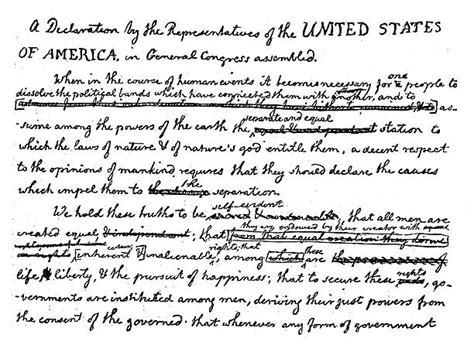 A Declaration by the Representatives of the UNITED STATES
OF AMERICA, in General Congress assembled.
When in the course of human events it becomes necessary for one people to
dissolve the political bands which have connected them with another, and to
as-
separate and equal
-sume among the powers of the earth the station to
which the laws of nature & of nature's god entitle them, a decent respect
to the opinions of mankind requires that they should declare the causes
which impel them to the separation.
We hold these truths to be self evident, that all men are
created equal; that they are endowed by their creator with
rights; that
inherent & inalienable, among which these are
life, liberty, & the pursuit of happiness; that to secure these rights, go-
-vernments are instituted among men, deriving their just powers from
the consent of the governed. that whenever any form of government